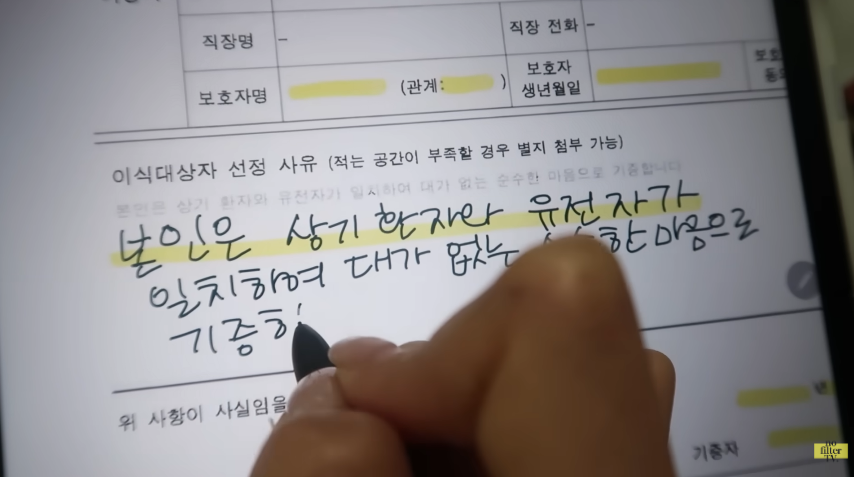 직장명 – 직장 전화 –
보호자명 (관계: ) 보호자 생년월일
이식대상자 선정 사유 (적는 공간이 부족할 경우 별지 첨부 가능)
본인은 상기 환자와 유전자가 일치하여 대가 없는 순수한 마음으로 기증합니다
본인은 상기 환자와 유전자가
일치하여 대가 없는 한 마음으로
기증하
위 사항이 사실임을
년
기증자
no
filter
TV